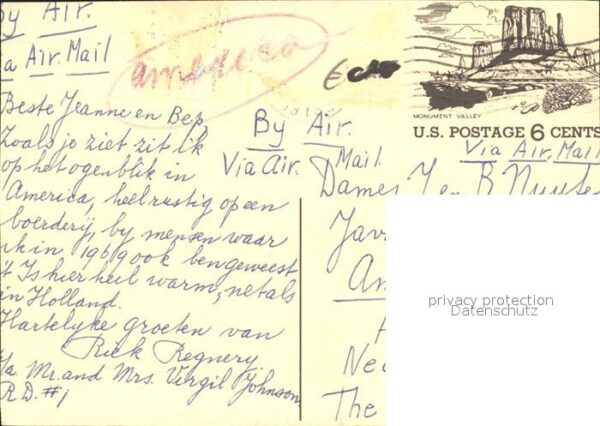 By Air.
a Air Mail
america
6 c
MONUMENT VALLEY
U.S. POSTAGE 6 CENTS
By Air.
Via Air. Mail.
Via Air Mail
Beste Jeanne en Bep
Zoals je ziet zit ik
op het ogenblik in
America, heel rustig op een
boerderij, by mensen waar
ik in 1969 ook ben geweest
't Is hier heel warm, net als
in Holland.
Hartelyke groeten van
Riek Regnery
Mr. and Mrs. Virgil Johnson
R.D. #1
Dames J en B
Jav
Am
Ned
The
privacy protection
Datenschutz